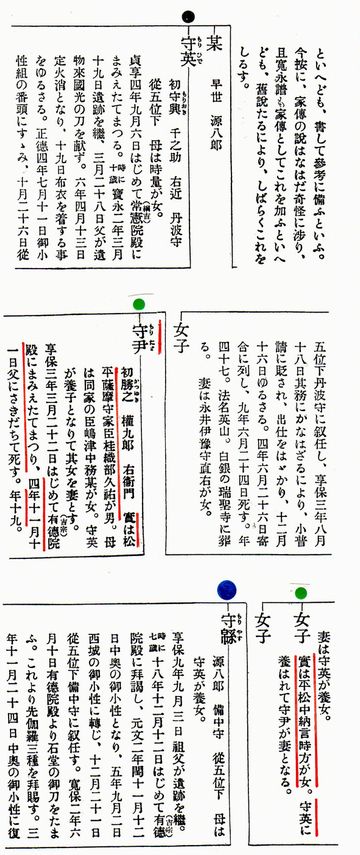 といへども、書して參考に備ふといふ。
今按に、家傳の說はなはだ奇怪に涉り、
且寛永譜も家傳としてこれを加ふといへ
ども、舊說たるにより、しばらくこれを
しるす。
某
早世 源八郎
守英 もりひで
初守興 もりおき 千之助 右近 丹波守
從五位下 母は時量が女。
貞享四年九月六日はじめて常憲院殿に (綱吉)
まみえたてまつる。時に十歲 寶永二年三月
十九日遺跡を繼、三月二十八日父が遺
物來國光の刀を獻ず。六年四月十三日
定火消となり、十九日布衣を着する事
をゆるさる。正德四年七月十一日御小
性組の番頭にすゝみ、十月二十六日從
五位下丹波守に叙任し、享保三年八月
十八日其務にかなはざるにより、小普
請に貶され、出仕をはゞかり、十二月
十六日ゆるさる。四年六月二十六日寄
合に列し、九年六月二十四日死す。年
四十七。法名英山。白銀の瑞聖寺に葬
る。 妻は永井伊豫守直右が女。
女子
守尹 もりたゞ
初勝之 かつゆき 權九郎 右衞門 實は松
平薩摩守家臣桂織部久祐が男。母
は同家の臣嶋津中務某が女。守英
が養子となりて其女を妻とす。
享保三年三月二十二日はじめて有德院 (吉宗)
殿にまみえたてまつり、四年十一月十
一日父にさきだちて死す。年十九。
妻は守英が養女。
女子
實は平松中納言時方が女。守英に
養はれて守尹が妻となる。
女子
守緜 もりやす
源八郎 備中守 從五位下 母は
守英が養女。
享保九年九月三日祖父が遺跡を繼。
時に七歲 十八年十二月十二日はじめて有德 (吉宗)
院殿に拜謁し、元文二年閏十一月十二
日中奧の御小性となり、五年九月二日
西城の御小性に轉じ、十二月二十一日
從五位下備中守に叙任す。寬保二年六
月十日有德院殿より石堂の御刀をたま
ふ。これより先伽羅三種を拜賜す。三
年十一月二十四日中奧の御小性に復